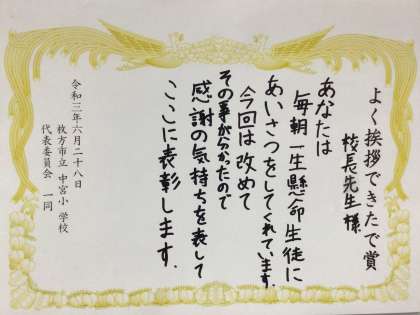 よく挨拶できたで賞
校長先生様
あなたは
毎朝一生懸命生徒に
あいさつをしてくれています。
今回は改めて
その事が分かったので
感謝の気持ちを表して
ここに表彰します。
令和三年六月二十八日
枚方市立 中宮小 学校
代表委員会 一同